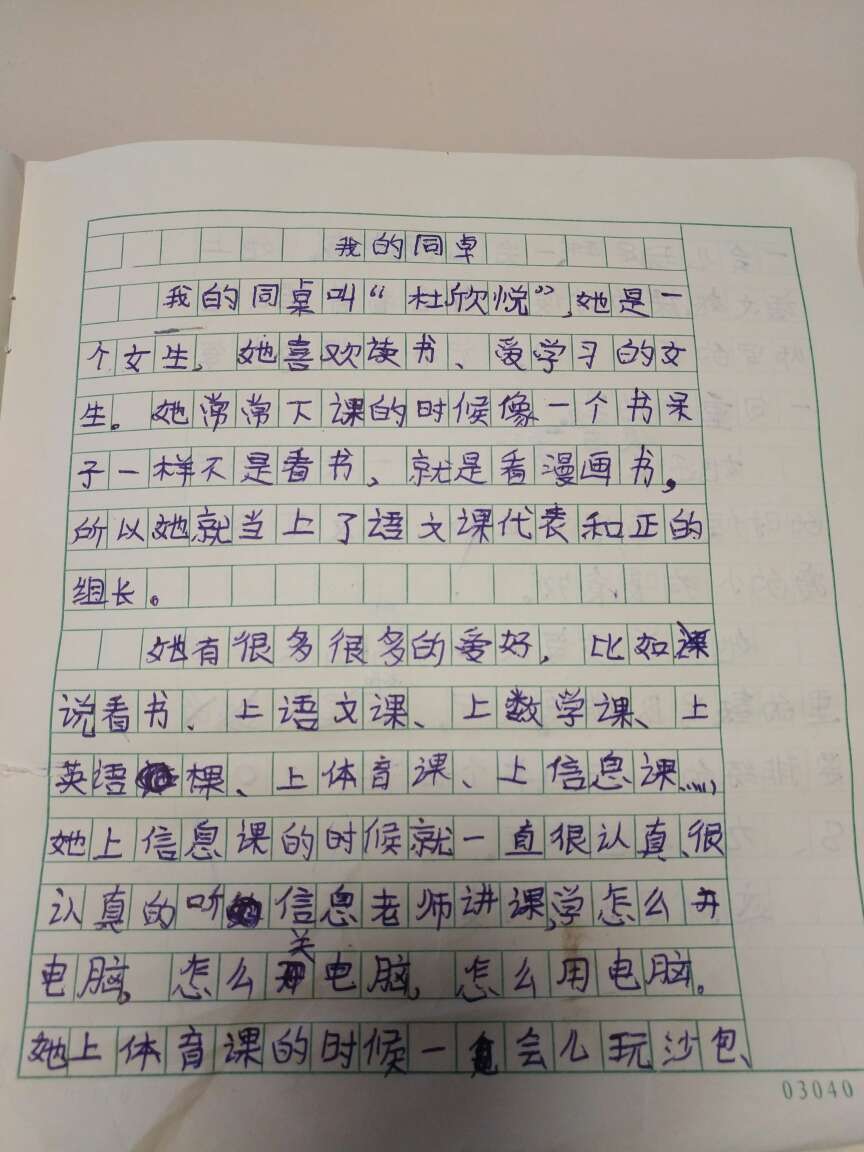 我的同卓
我的同桌叫“杜欣悦”,她是一
个女生,她喜欢读书、爱学习的女
生。她常常下课的时候像一个书呆
子一样不是看书、就是看漫画书,
所以她就当上了语文课代表和正的
组长。
她有很多很多的爱好,比如
说看书、上语文课、上数学课、上
英语棵、上体育课、上信息课……,
她上信息课的时候就一直很认真、很
认真的听信息老师讲课,学怎么开
电脑,怎么关电脑,怎么用电脑。
她上体育课的时候一会儿玩沙包、
03040